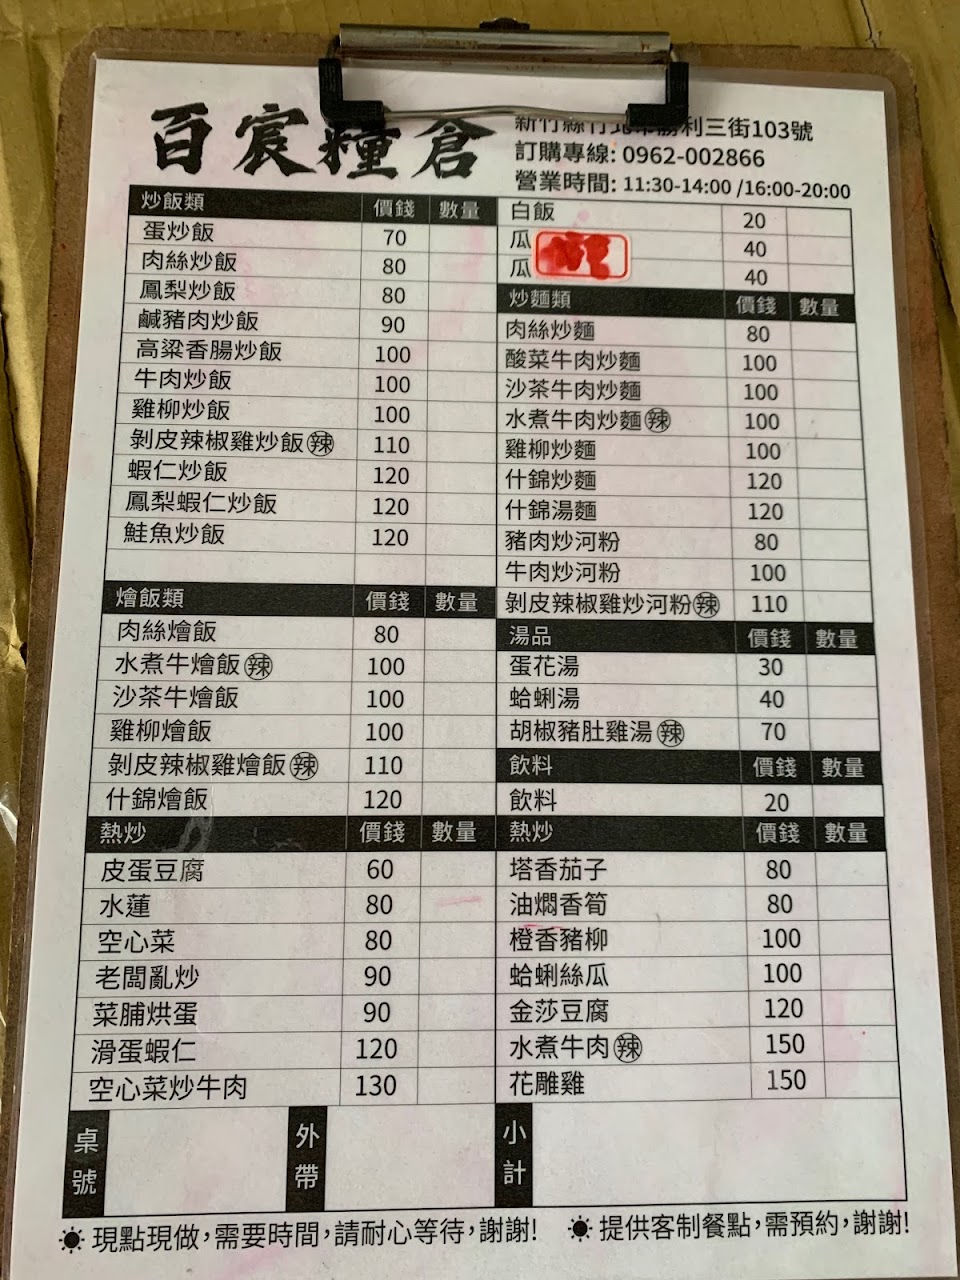 百宸糧倉
新竹縣竹北市勝利三街103號
訂購專線: 0962-002866
營業時間: 11:30-14:00 /16:00-20:00
炒飯類 價錢 數量
蛋炒飯 70
肉絲炒飯 80
鳳梨炒飯 80
鹹豬肉炒飯 90
高粱香腸炒飯 100
牛肉炒飯 100
雞柳炒飯 100
剝皮辣椒雞炒飯辣 110
蝦仁炒飯 120
鳳梨蝦仁炒飯 120
鮭魚炒飯 120
燴飯類 價錢 數量
肉絲燴飯 80
水煮牛燴飯辣 100
沙茶牛燴飯 100
雞柳燴飯 100
剝皮辣椒雞燴飯辣 110
什錦燴飯 120
熱炒 價錢 數量
皮蛋豆腐 60
水蓮 80
空心菜 80
老闆亂炒 90
菜脯烘蛋 90
滑蛋蝦仁 120
空心菜炒牛肉 130
白飯 20
瓜 40
瓜 40
炒麵類 價錢 數量
肉絲炒麵 80
酸菜牛肉炒麵 100
沙茶牛肉炒麵 100
水煮牛肉炒麵辣 100
雞柳炒麵 100
什錦炒麵 120
什錦湯麵 120
豬肉炒河粉 80
牛肉炒河粉 100
剝皮辣椒雞炒河粉辣 110
湯品 價錢 數量
蛋花湯 30
蛤蜊湯 40
胡椒豬肚雞湯辣 70
飲料 價錢 數量
飲料 20
熱炒 價錢 數量
塔香茄子 80
油燜香筍 80
橙香豬柳 100
蛤蜊絲瓜 100
金莎豆腐 120
水煮牛肉辣 150
花雕雞 150
桌號
外帶
小計
現點現做，需要時間，請耐心等待，謝謝!
提供客制餐點，需預約，謝謝!